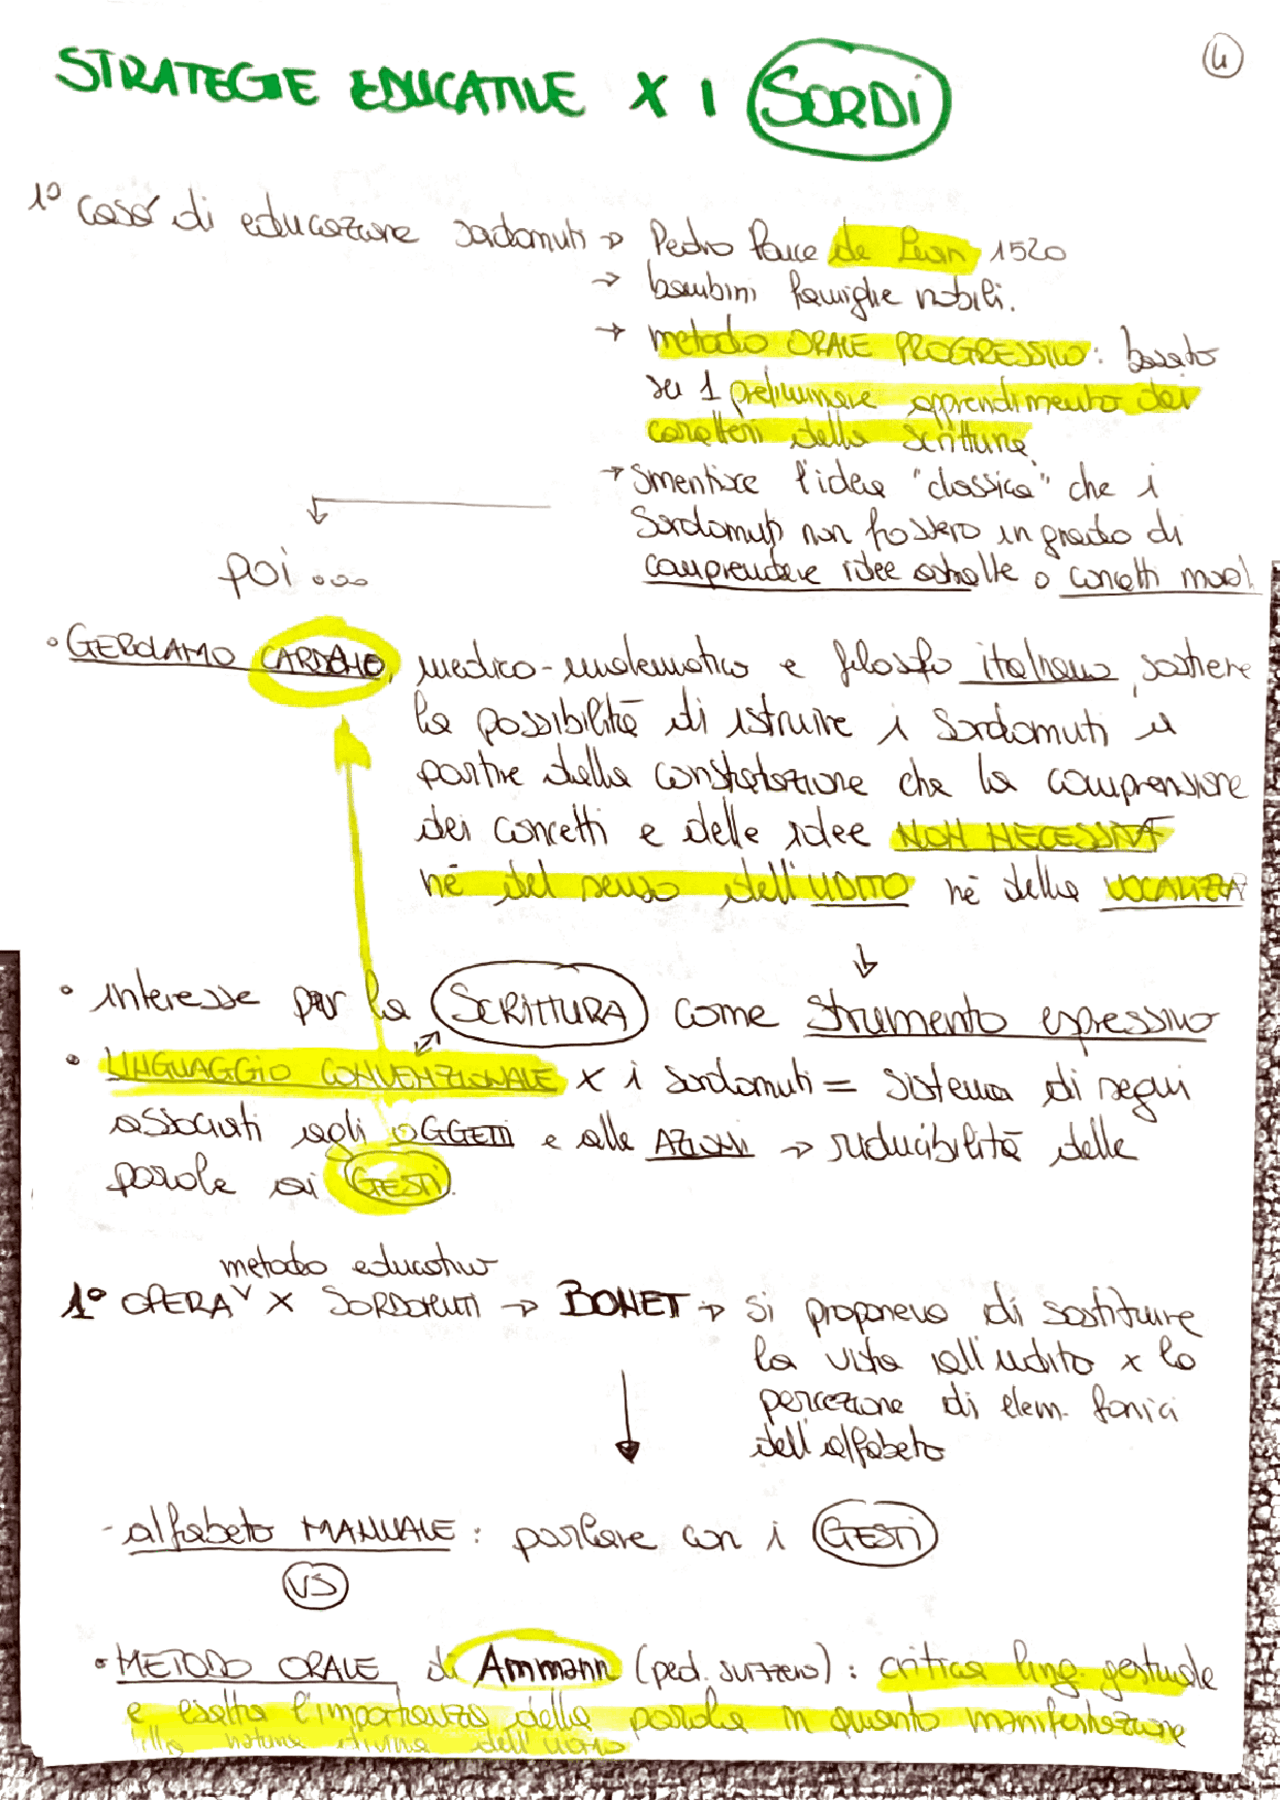 4
STRATEGIE EDUCATIVE X I SORDI
1° caso di educazione sordomuti → Pedro Ponce de Leon 1520
→ bambini famiglie nobili.
→ metodo ORALE PROGRESSIVO: basato
su 1 preliminare apprendimento dei
caratteri della scrittura
→ Smentisce l'idea "classica" che i
Sordomuti non fossero in grado di
comprendere idee astratte o concetti moral
poi...
• GEROLAMO CARDANO, medico-matematico e filosofo italiano, sostiene
la possibilità di istruire i Sordomuti a
partire dalla constatazione che la comprensione
dei concetti e delle idee NON NECESSITA
né del senso dell'UDITO né della VOCALIZZA
↓
• interesse per la SCRITTURA come strumento espressivo
• LINGUAGGIO CONVENZIONALE x i sordomuti = sistema di segni
associati agli OGGETTI e alle AZIONI → riducibilità delle
parole ai GESTI.
metodo educativo
1° OPERA v X SORDOMUTI → BONET → si proponeva di sostituire
la vista all'udito x la
percezione di elem. fonici
dell'alfabeto
- alfabeto MANUALE: parlare con i GESTI
VS
• METODO ORALE di Ammann (ped. svizzero): critica ling. gestuale
e esalta l'importanza della parola in quanto manifestazione
della natura divina dell'uomo